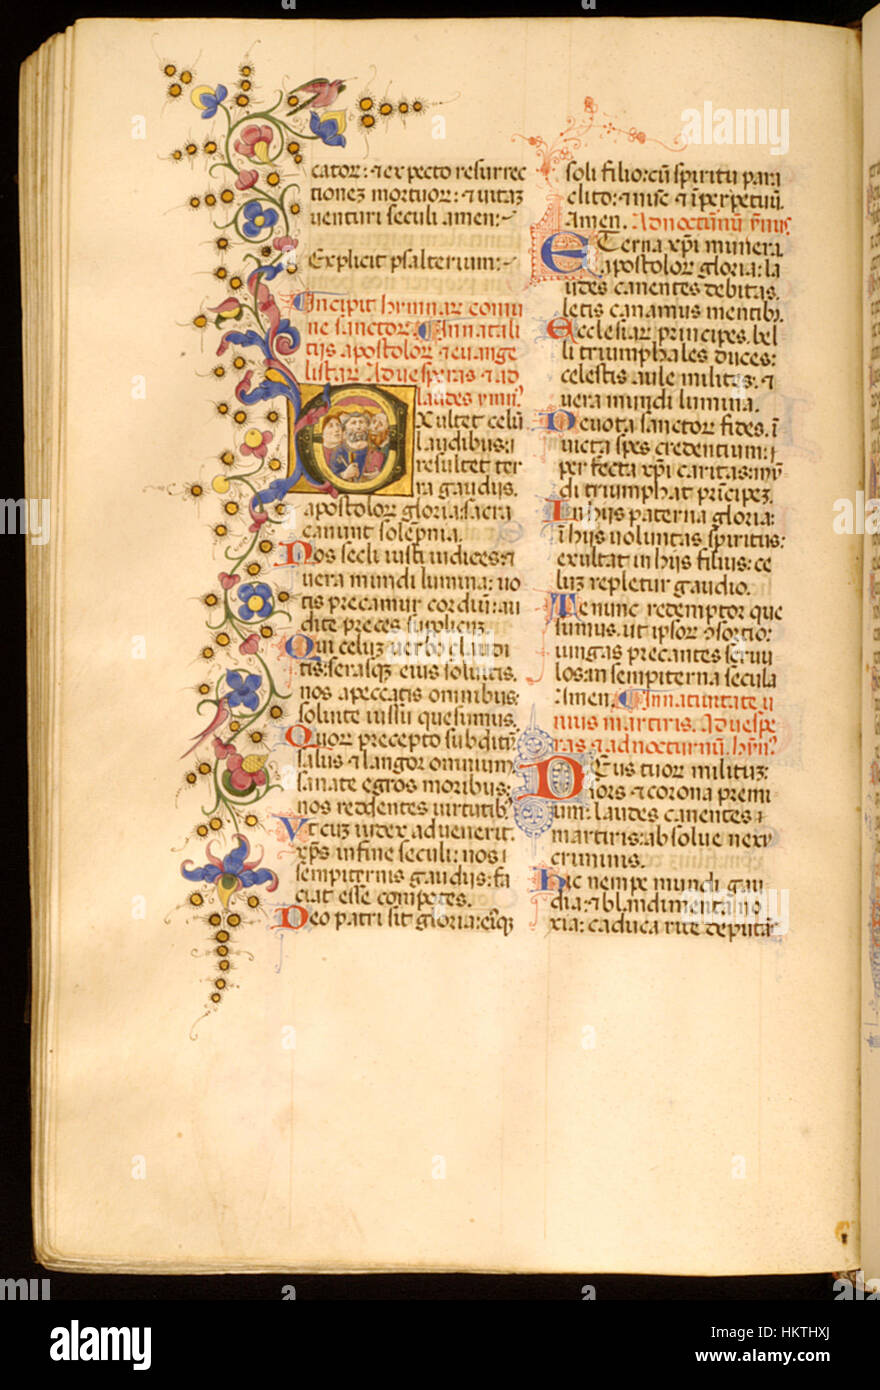 cator: ⁊ expecto resurrec
tionez mortuor: ⁊ uitaz
uenturi seculi amen:~
Explicit psalterium:~
Incipit hymnar comu
ne sanctor. In natali
tijs apostolor ⁊ euange
listar. Ad uesperas ⁊ ad
laudes
EXultet celū
laudibus: i
resultet ter
ra gaudijs.
apostolor gloria: sacra
canunt solēpnia.
Nos secli iusti iudices: ⁊
uera mundi lumina: uo
tis precamur cordiū: au
dite preces suplicuz.
Qui celuz uerbo claudi
tis: serasqz eius soluitis.
nos a peccatis omnibus:
soluite iussu quesumus.
Quor precepto subditur
salus ⁊ langor omnium:
sanate egros moribus:
nos reddentes uirtutibz.
Vt cuz iudex aduenerit.
xp̄s in fine seculi: nos i
sempiternis gaudijs: fa
ciat esse compotes.
Deo patri sit gloria: eiqz
soli filio: cū spiritu para
clito: ⁊ nūc ⁊ ī perpetuū.
Amen. Ad nocturnū
ETerna xp̄i munera.
apostolor gloria: la
udes canentes debitas.
letis canamus mentibz.
Ecclesiar principes. bel
li triumphales duces:
celestis aule milites. ⁊
uera mundi lumina.
Deuota sanctor fides. ī
uicta spes credentium: ⁊
perfecta xp̄i caritas: mū
di triumphat prīcipez.
In hijs paterna gloria:
ī hijs uoluntas spiritus:
exultat in hijs filius: ce
luz repletur gaudio.
Te nunc redemptor que
sumus. ut ipsor ꝯsortio:
iungas precantes seruu
los: in sempiterna secula
Amen. In natiuitate u
nius martiris. Ad uespe
ras ⁊ ad nocturnū. hymn
DEus tuor militux:
sors ⁊ corona premi
um: laudes canentes
martiris: absolue nexu
criminis.
Hic nempe mundi gau
dia: ⁊ blandimenta no
xia: caduca rite deputās
alamy
alamy
Image ID: HKTHXJ
www.alamy.com